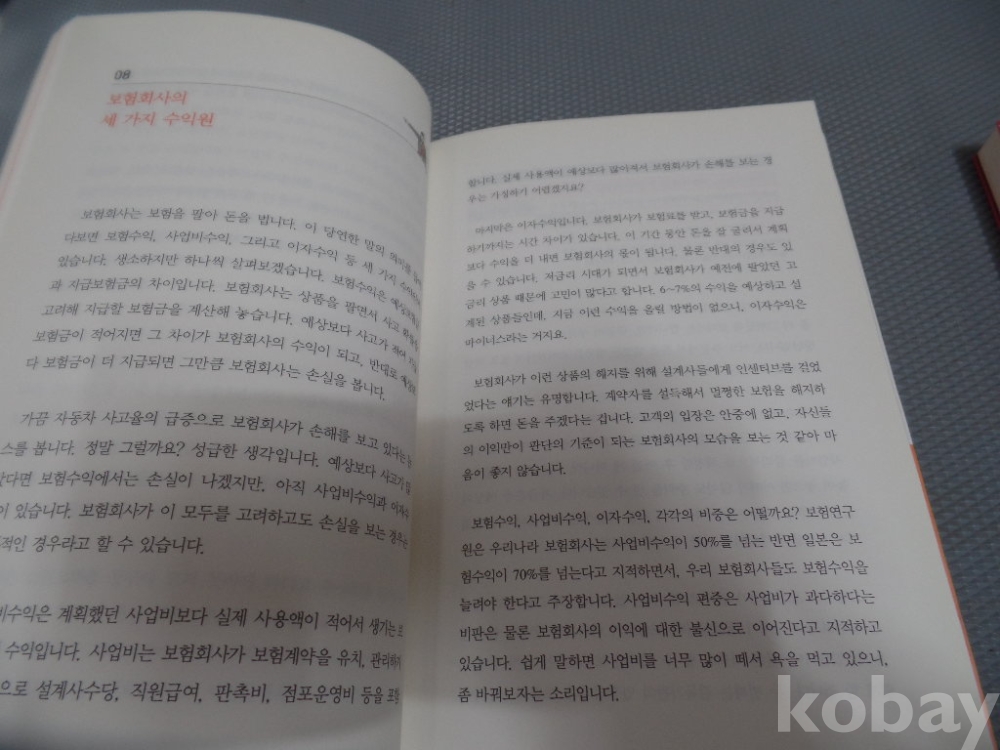 08
보험회사의
세 가지 수익원
보험회사는 보험을 팔아 돈을 법니다. 이 당연한 말의
다보면 보험수익, 사업비수익, 그리고 이자수익 등 세 가지
있습니다. 생소하지만 하나씩 살펴보겠습니다. 보험수익은
과 지급보험금의 차이입니다. 보험회사는 상품을 팔면서 사고
고려해 지급할 보험금을 계산해 놓습니다. 예상보다 사고가 적어
보험금이 적어지면 그 차이가 보험회사의 수익이 되고, 반대로
다 보험금이 더 지급되면 그만큼 보험회사는 손실을 봅니다.
가끔 자동차 사고율의 급증으로 보험회사가 손해를 보고 있다는
스를 봅니다. 정말 그럴까요? 성급한 생각입니다. 예상보다 사고가
았다면 보험수익에서는 손실이 나겠지만, 아직 사업비수익과
이 있습니다. 보험회사가 이 모두를 고려하고도 손실을 보는 경우는
적인 경우라고 할 수 있습니다.
비수익은 계획했던 사업비보다 실제 사용액이 적어서 생기는
수익입니다. 사업비는 보험회사가 보험계약을 유치, 관리하기
으로 설계사수당, 직원급여, 판촉비, 점포운영비 등을
합니다. 실제 사용액이 예상보다 많아져서 보험회사가 손해를 보는 경
우는 가정하기 어렵겠지요?
마지막은 이자수익입니다. 보험회사가 보험료를 받고, 보험금을 지급
하기까지는 시간 차이가 있습니다. 이 기간 동안 돈을 잘 굴려서 계획
보다 수익을 더 내면 보험회사의 몫이 됩니다. 물론 반대의 경우도 있
을 수 있습니다. 저금리 시대가 되면서 보험회사가 예전에 팔았던 고
금리 상품 때문에 고민이 많다고 합니다. 6~7%의 수익을 예상하고 설
계된 상품들인데, 지금 이런 수익을 올릴 방법이 없으니, 이자수익은
마이너스라는 거지요.
보험회사가 이런 상품의 해지를 위해 설계사들에게 인센티브를 걸었
었다는 얘기는 유명합니다. 계약자를 설득해서 멀쩡한 보험을 해지하
도록 하면 돈을 주겠다는 겁니다. 고객의 입장은 안중에 없고, 자신들
의 이익만이 판단의 기준이 되는 보험회사의 모습을 보는 것 같아 마
음이 좋지 않습니다.
보험수익, 사업비수익, 이자수익, 각각의 비중은 어떨까요? 보험연구
원은 우리나라 보험회사는 사업비수익이 50%를 넘는 반면 일본은 보
험수익이 70%를 넘는다고 지적하면서, 우리 보험회사들도 보험수익을
늘려야 한다고 주장합니다. 사업비수익 편중은 사업비가 과다하다는
비판은 물론 보험회사의 이익에 대한 불신으로 이어진다고 지적하고
있습니다. 쉽게 말하면 사업비를 너무 많이 떼서 욕을 먹고 있으니,
좀 바꿔보자는 소리입니다.
kobay